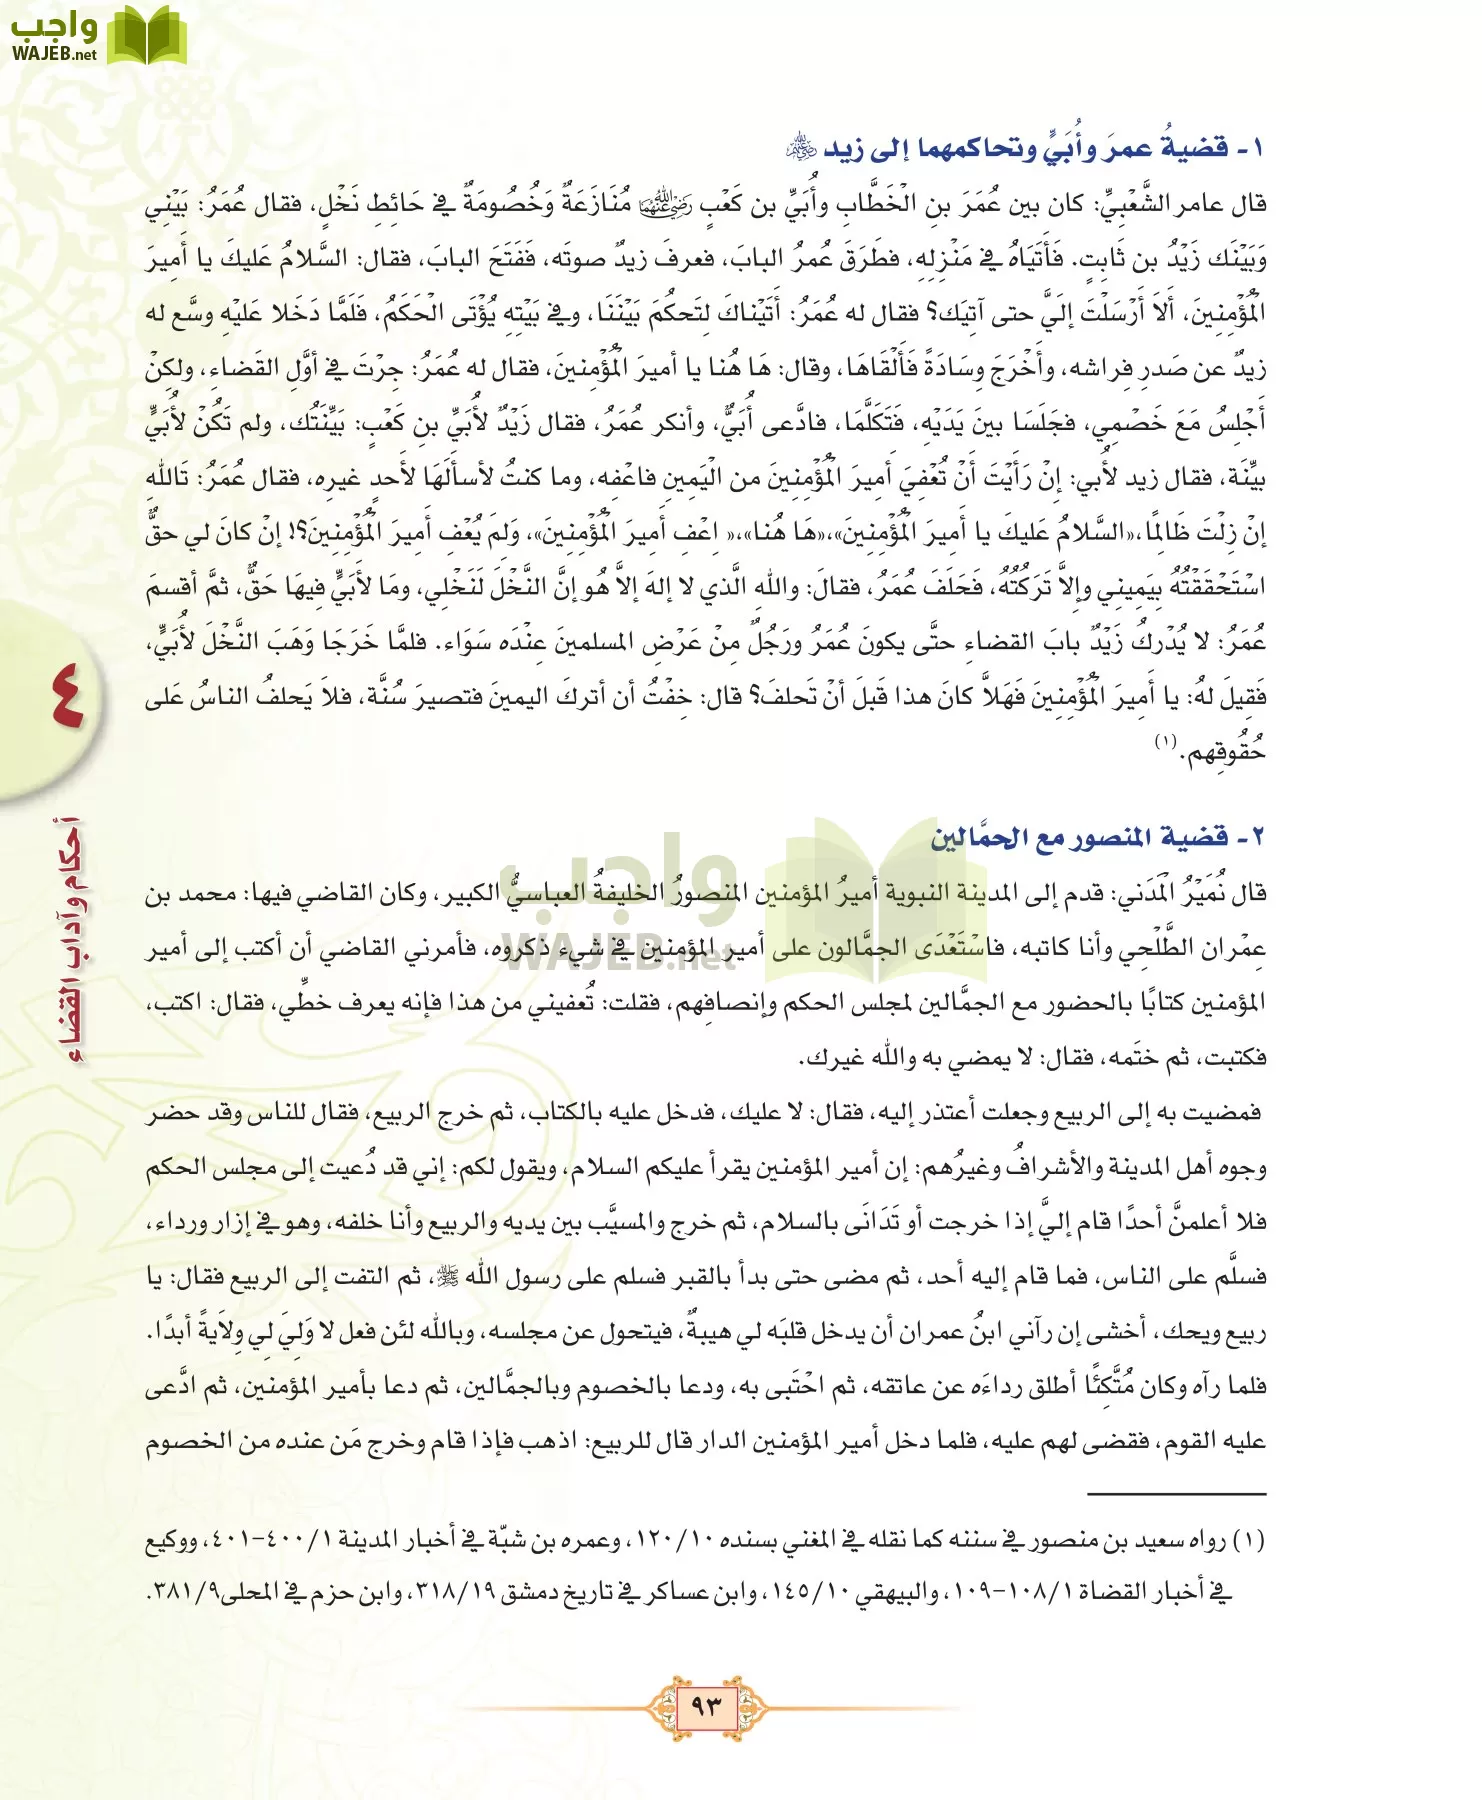 واجب
WAJEB.net
١- قضيةُ عمرَ وأُبَيٍّ وتحاكمهما إلى زيد ﷺ
قال عامر الشَّعْبِيِّ: كان بين عُمَرَ بنِ الْخَطَّابِ وأُبَيِّ بن كَعْبٍ رَضِيَ اللهُ عَنْهُمَا مُنَازَعَةٌ وَخُصُومَةٌ في حَائِطِ نَخْلٍ، فقال عُمَرُ: بَيْنِي
وَبَيْنَك زَيْدُ بن ثابتٍ. فَأَتَيَاهُ في مَنْزِلِهِ، فطَرَقَ عُمرُ البابَ، فعرفَ زيدٌ صوتَه، فَفَتَحَ البابَ، فقال: السَّلامُ عليكَ يا أَمِيرَ
الْمُؤْمِنِينَ، أَلاَ أَرْسَلْتَ إلَيَّ حتى آتيَك؟ فقال له عُمَرُ: أَتَيْناكَ لِتَحكُمَ بَيْنَنَا، وفي بَيْتِهِ يُؤْتَى الْحَكَمُ، فَلَمَّا دَخَلا عَلَيْهِ وسَّع له
زيدٌ عن صَدرِ فِراشه، وأَخْرَجَ وِسَادَةً فَأَلْقَاهَا، وقال: هَا هُنا يا أميرَ الْمُؤْمنينَ، فقال له عُمَرُ: جِرْتَ في أوَّلِ القَضاءِ، ولكِنْ
أَجْلِسُ مَعَ خَصْمِي، فجَلَسَا بينَ يَدَيْهِ، فَتَكَلَّمَا، فادَّعى أُبَيٌّ، وأنكر عُمَرُ، فقال زَيْدٌ لأُبَيِّ بنِ كَعْبٍ: بَيِّنَتُك، ولم تَكُنْ لأُبَيٍّ
بيِّنَة، فقال زيد لأُبي: إنْ رَأَيْتَ أَنْ تُعْفِيَ أَمِيرَ الْمُؤْمِنِينَ من الْيَمِينِ فاعْفِه، وما كنتُ لأسألَهَا لأَحدٍ غيرِه، فقال عُمَرُ: تَاللهِ
إنْ زِلْتَ ظَالِمًا، «السَّلامُ عَليكَ يا أَمِيرَ الْمُؤْمِنِينَ»، «هَا هُنا»، «اِعْفِ أَمِيرَ الْمُؤْمِنِينَ»، وَلمَ يُعْفِ أَمِيرَ الْمُؤْمِنِينَ؟! إنْ كانَ لي حقٌّ
اسْتَحْقَقْتُهُ بِيَمِيني وإلاَّ تَرَكْتُهُ، فَحَلَفَ عُمَرُ، فقالَ: واللهِ الَّذي لا إلهَ إلاَّ هُو إنَّ النَّخْلَ لَنَخْلِي، ومَا لأُبَيٍّ فِيهَا حَقٌّ، ثمَّ أقسمَ
عُمَرُ: لا يُدْركُ زَيْدٌ بابَ القضاءِ حتَّى يكونَ عُمَرُ ورَجُلٌ مِنْ عَرْضِ المسلمينَ عِنْدَه سَوَاء. فلمَّا خَرَجَا وَهَبَ النَّخْلَ لأُبَيٍّ،
فَقِيلَ لهُ: يا أَمِيرَ الْمُؤْمِنِينَ فَهَلاَّ كانَ هذا قَبلَ أنْ تَحلفَ؟ قال: خِفْتُ أن أتركَ اليمينَ فتصيرَ سُنَّة، فلاَ يَحلفُ الناسُ عَلى
حُقُوقِهم.(١)
٢- قضية المنصور مع الحمَّالين
قال نُمَيْرُ الْمَدَني: قدم إلى المدينة النبوية أميرُ المؤمنين المنصورُ الخليفةُ العباسيُّ الكبير، وكان القاضي فيها: محمد بن
عِمْران الطَّلْحِي وأنا كاتبه، فاسْتَعْدَى الجمَّالون على أمير المؤمنين في شيء ذكروه، فأمرني القاضي أن أكتب إلى أمير
المؤمنين كتابًا بالحضور مع الجمَّالين لمجلس الحكم وإنصافِهم، فقلت: تُعفيني من هذا فإنه يعرف خطِّي، فقال: اكتب،
فكتبت، ثم ختَمه، فقال: لا يمضي به والله غيرك.
فمضيت به إلى الربيع وجعلت أعتذر إليه، فقال: لا عليك، فدخل عليه بالكتاب، ثم خرج الربيع، فقال للناس وقد حضر
وجوه أهل المدينة والأشرافُ وغيرُهم: إن أمير المؤمنين يقرأ عليكم السلام، ويقول لكم: إني قد دُعيت إلى مجلس الحكم
فلا أعلمنَّ أحدًا قام إليَّ إذا خرجت أو تَدَانَى بالسلام، ثم خرج والمسيَّب بين يديه والربيع وأنا خلفه، وهو في إزار ورداء،
فسلَّم على الناس، فما قام إليه أحد، ثم مضى حتى بدأ بالقبر فسلم على رسول الله ﷺ، ثم التفت إلى الربيع فقال: يا
ربيع ويحك، أخشى إن رآني ابنُ عمران أن يدخل قلبَه لي هيبةٌ، فيتحول عن مجلسه، وبالله لئن فعل لا وَلِيَ لِي وِلاَيةً أبدًا.
فلما رآه وكان مُتَّكِئًا أطلق رداءَه عن عاتقه، ثم احْتَبى به، ودعا بالخصوم وبالجمَّالين، ثم دعا بأمير المؤمنين، ثم ادَّعى
عليه القوم، فقضى لهم عليه، فلما دخل أمير المؤمنين الدار قال للربيع: اذهب فإذا قام وخرج مَن عنده من الخصوم
(١) رواه سعيد بن منصور في سننه كما نقله في المغني بسنده ١٢٠/١٠، وعمره بن شبّة في أخبار المدينة ٤٠٠/١-٤٠١، ووكيع
في أخبار القضاة ١٠٨/١-١٠٩، والبيهقي ١٤٥/١٠، وابن عساكر في تاريخ دمشق ٣١٨/١٩، وابن حزم في المحلى٣٨١/٩.
٤
أحكام وآداب القضاء
واجب
WAJEB.net
٩٣